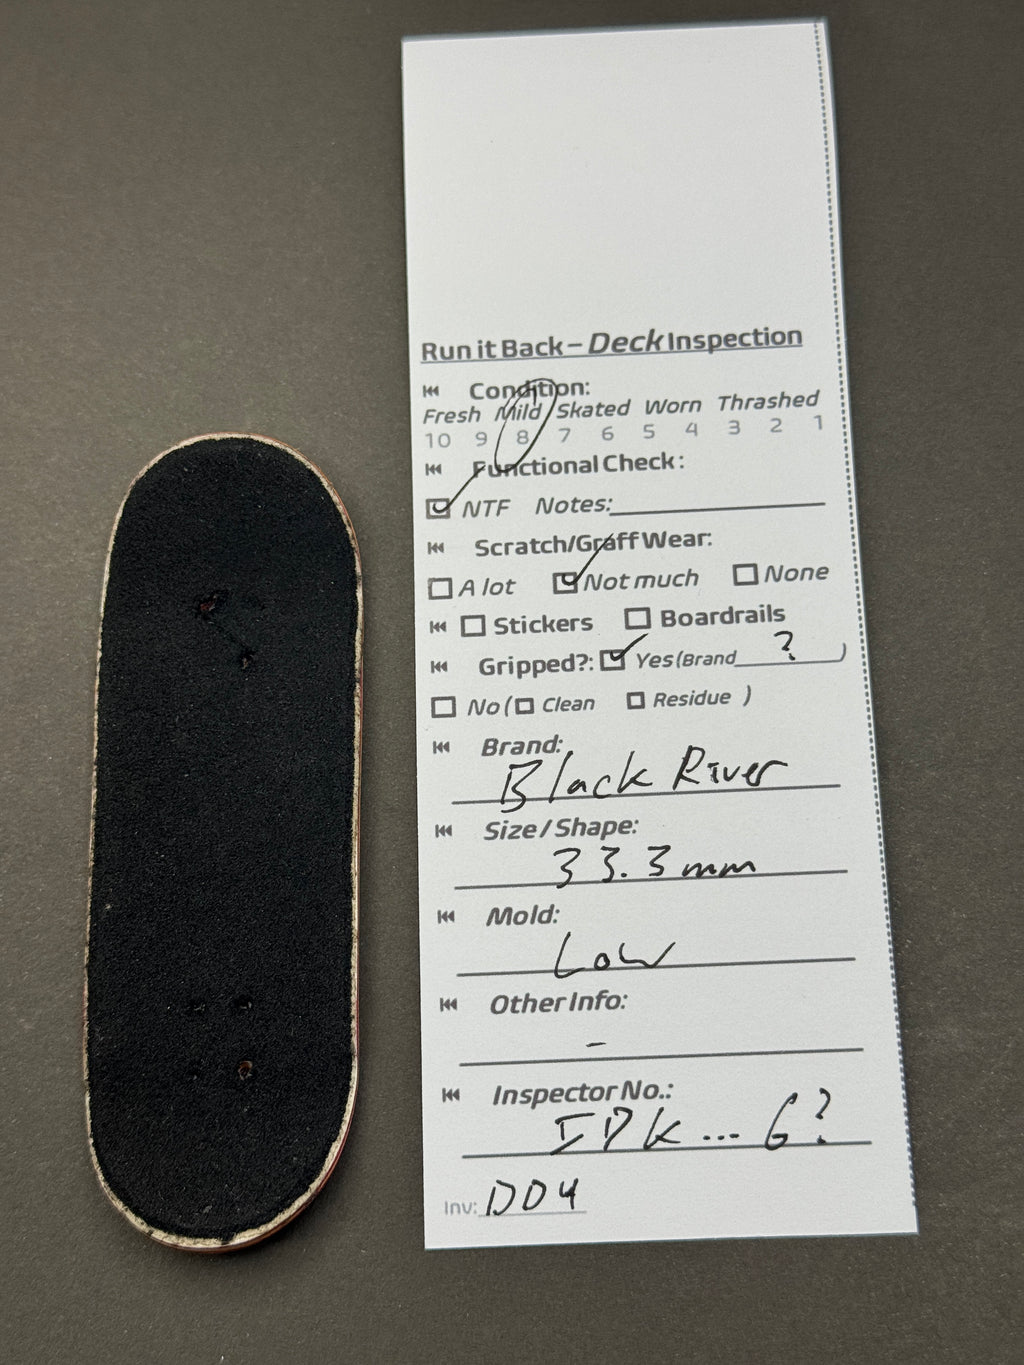 Run it Back – Deck Inspection
Condition:
Fresh Mild Skated Worn Thrashed
10 9 8 7 6 5 4 3 2 1
Functional Check:
NTF Notes:
Scratch/Graff Wear:
A lot Not much None
Stickers Boardrails
Gripped?: Yes (Brand ? )
No ( Clean Residue )
Brand:
Black River
Size / Shape:
33.3mm
Mold:
Low
Other Info:
-
Inspector No.:
IDK... 6?
Inv: D04